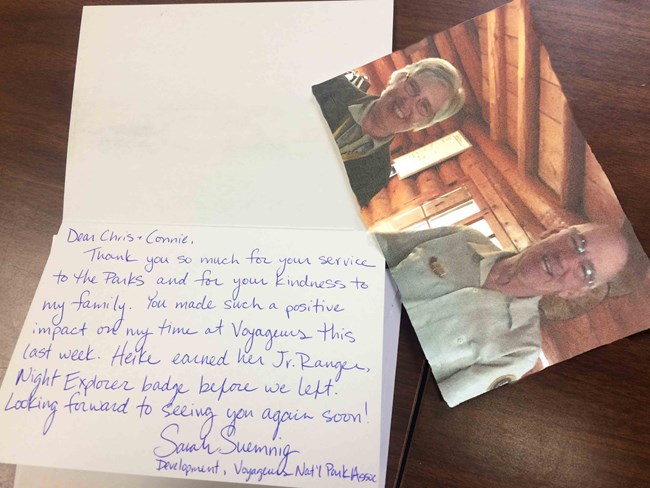 Dear Chris + Connie,
Thank you so much for your service
to the Parks and for your kindness to
my family. You made such a positive
impact on my time at Voyageurs this
last week. Heike earned her Jr. Ranger,
Night Explorer badge before we left.
Looking forward to seeing you again soon!
Sarah Suemnig
Development, Voyageurs Nat'l Park Assoc